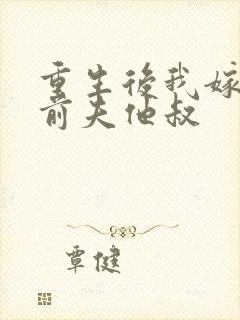 重生後我嫁
前夫他叔
覃健